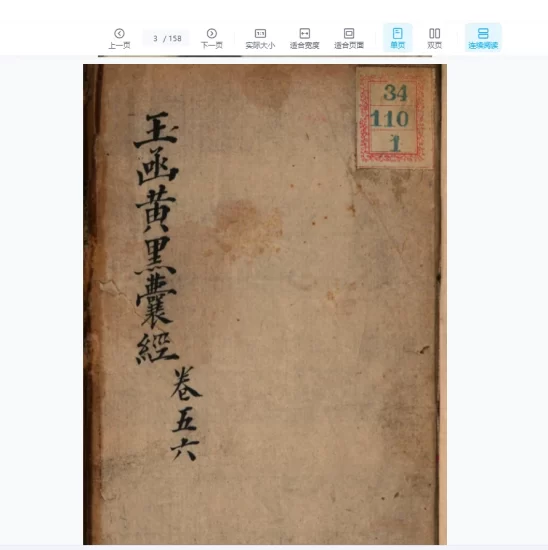 上一页
3 / 158
下一页
实际大小
适合宽度
适合页面
单页
双页
连续阅读
玉函黄黑囊經
卷五六
34
110
1